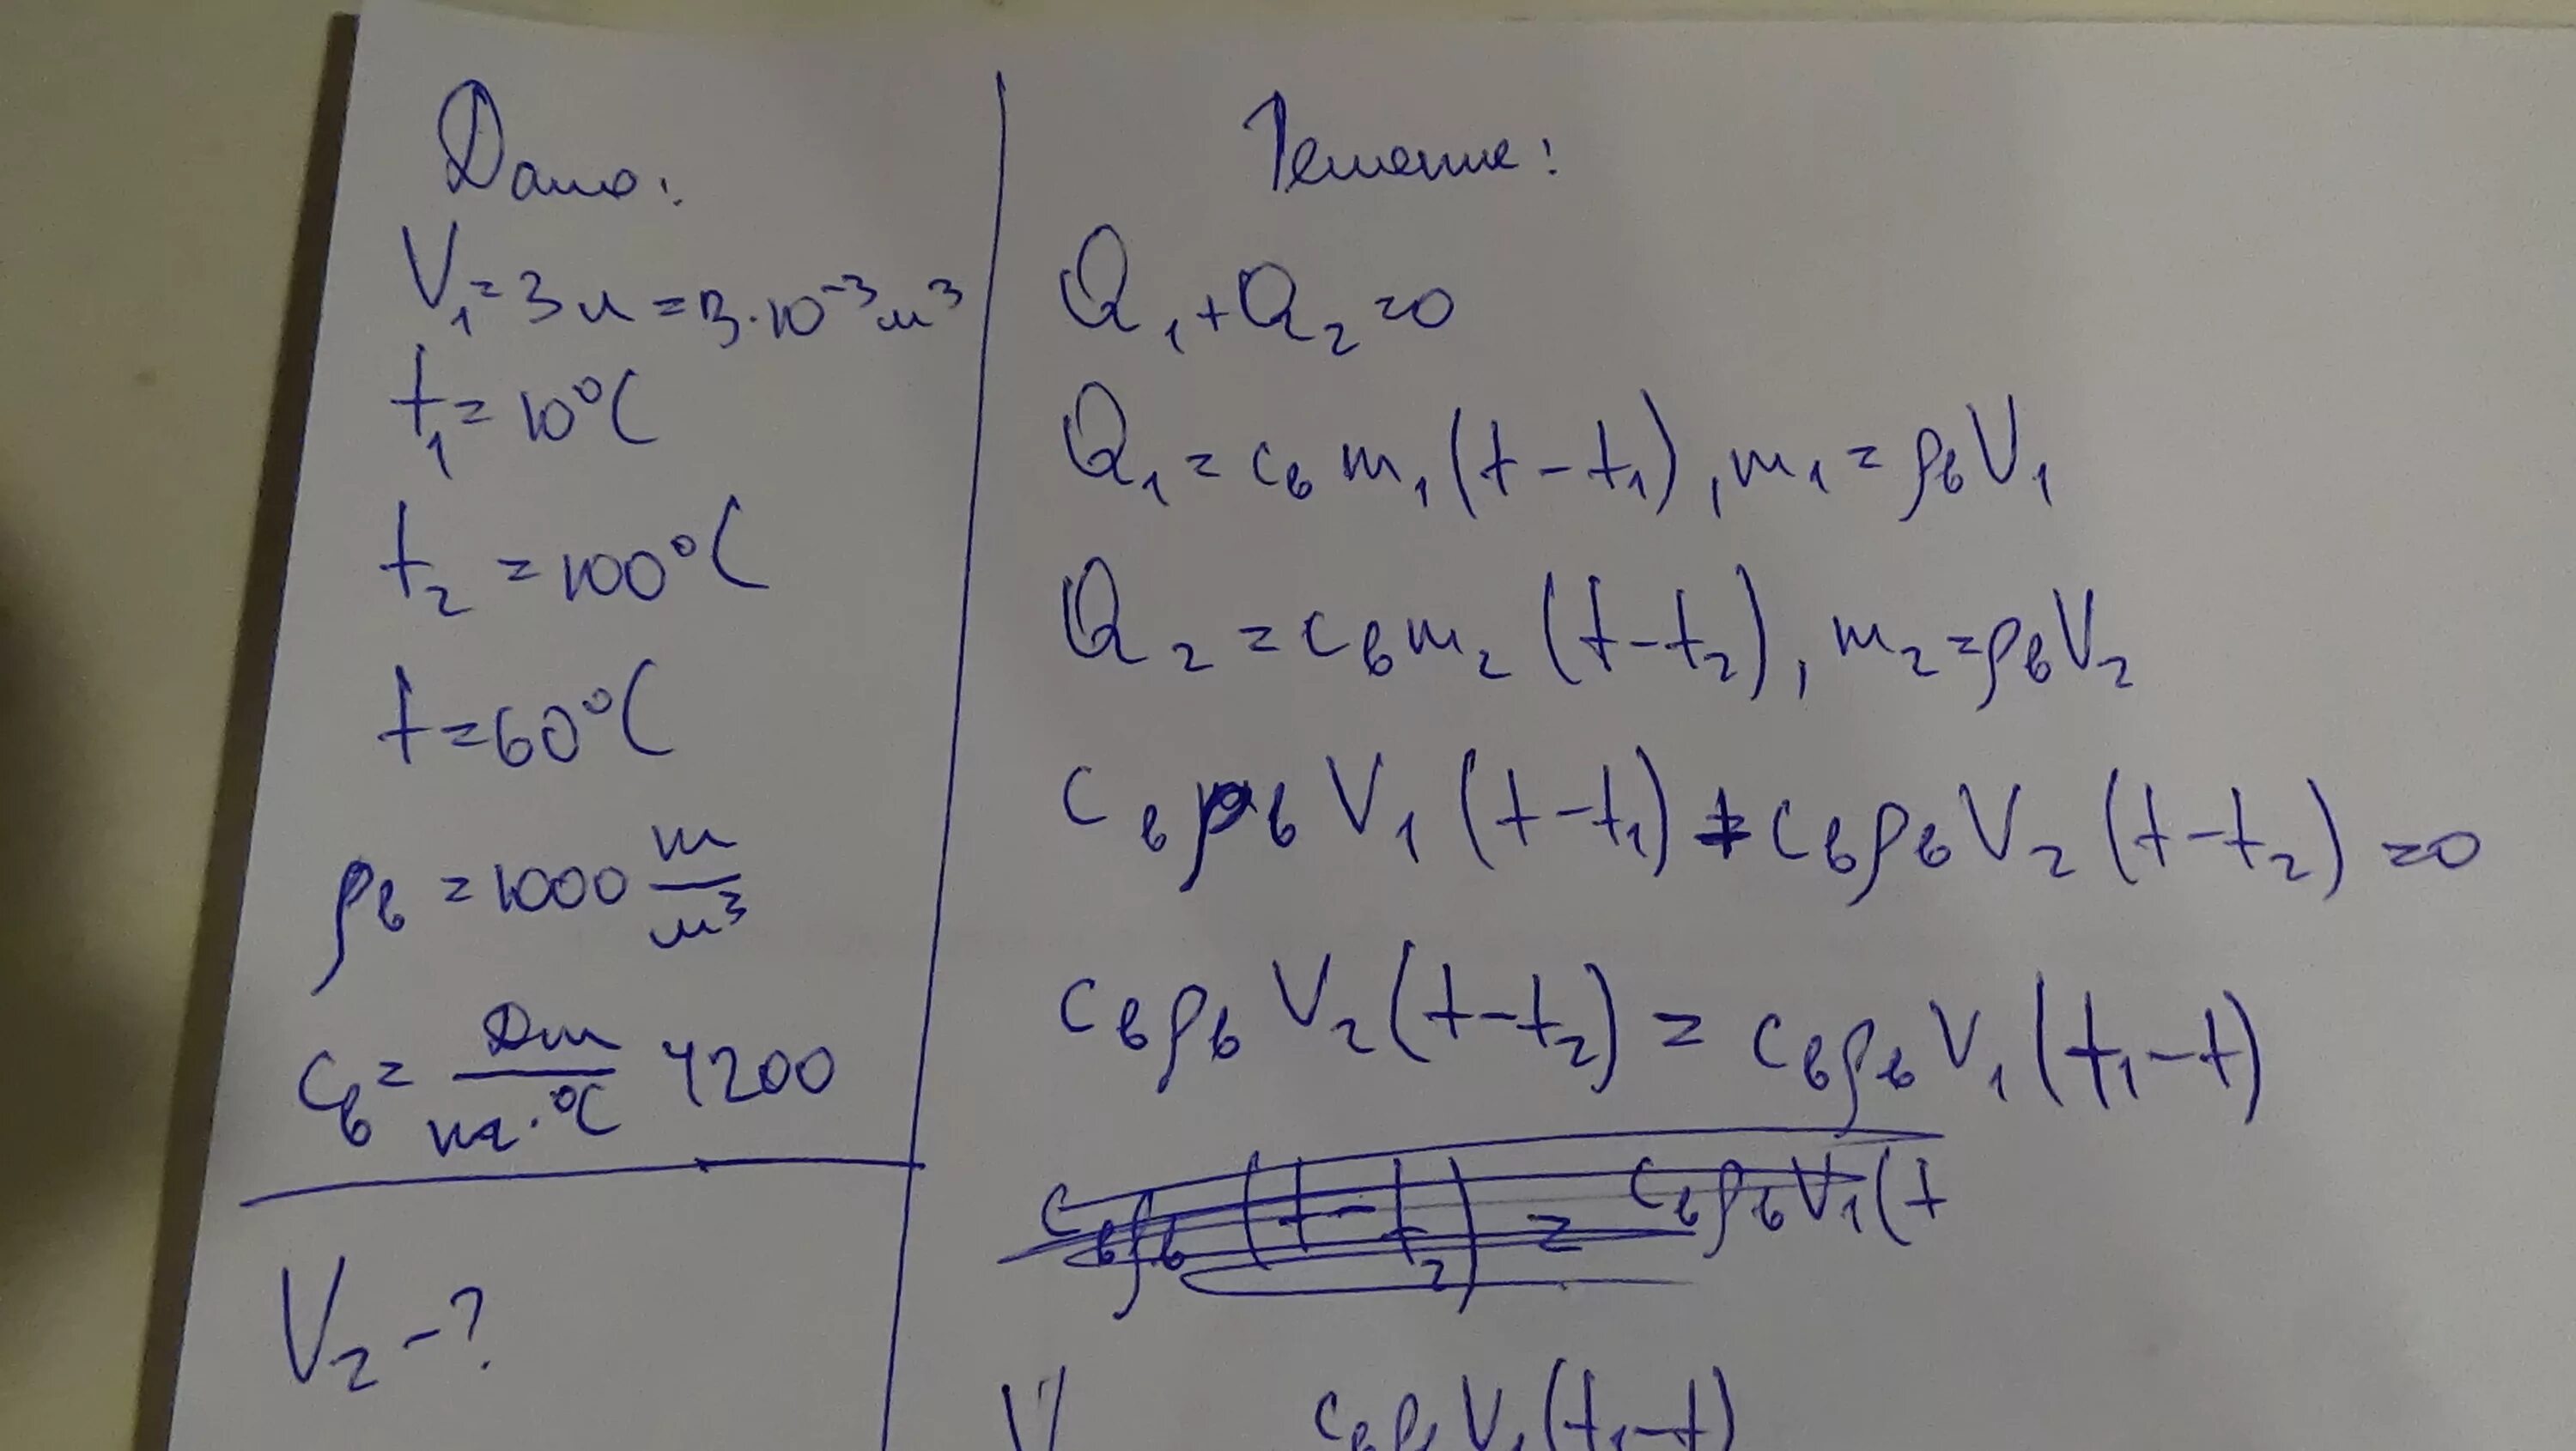 Дано:
V₁ = 3 л = 3·10⁻³ м³
t₁ = 10°C
t₂ = 100°C
t = 60°C
ρв = 1000 кг/м³
cв = Дж/кг·°C 4200
V₂ - ?
Решение:
Q₁ + Q₂ = 0
Q₁ = cв m₁ (t - t₁), m₁ = ρв V₁
Q₂ = cв m₂ (t - t₂), m₂ = ρв V₂
cв ρв V₁ (t - t₁) + cв ρв V₂ (t - t₂) = 0
cв ρв V₂ (t - t₂) = cв ρв V₁ (t₁ - t)
cв ρв (t - t₂) = cв ρв V₁ (t
V cв ρв V₁ (t₁ - t)